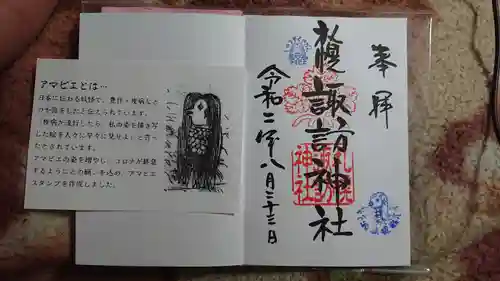 奉拝
札幌諏訪神社
令和二年八月二十三日
アマビエとは…
日本に伝わる妖怪で、豊作・疫病など
の予言をしたと伝えられています。
疫病が流行したら、私の姿を描き写
した絵を人々に早々に見せよ!と言っ
たとされています。
アマビエの姿を増やし、コロナが終息
するようにとの願いを込め、アマビエ
スタンプを作成しました。